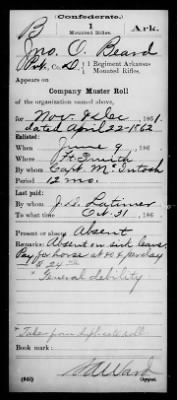 (Confederate.)
B 1 Ark.
Mounted Rifles.
Jno. O. Beard
Pvt, Co. D, 1 Regiment Arkansas Mounted Rifles.
Appears on
Company Muster Roll
of the organization named above,
for Nov. & Dec, 1861.
dated April 22-1862
Enlisted:
When June 9, 186
Where Ft. Smith
By whom Capt. McIntosh
Period 12 mo.
Last paid:
By whom J. S. Latimer
To what time Oct. 31, 186
Present or absent Absent
Remarks: Absent on sick leave.
Pay for horse at 40¢ per day
* General debility
* Taken from duplicate roll
Book mark:
(642) Copyist.